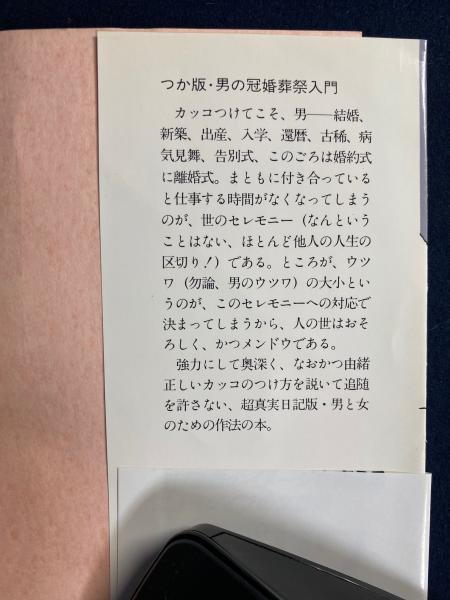 つか版・男の冠婚葬祭入門
カッコつけてこそ、男――結婚、
新築、出産、入学、還暦、古稀、病
気見舞、告別式、このごろは婚約式
に離婚式。まともに付き合っている
と仕事する時間がなくなってしまう
のが、世のセレモニー（なんという
ことはない、ほとんど他人の人生の
区切り！）である。ところが、ウツ
ワ（勿論、男のウツワ）の大小とい
うのが、このセレモニーへの対応で
決まってしまうから、人の世はおそ
ろしく、かつメンドウである。
強力にして奥深く、なおかつ由緒
正しいカッコのつけ方を説いて追随
を許さない、超真実日記版・男と女
のための作法の本。